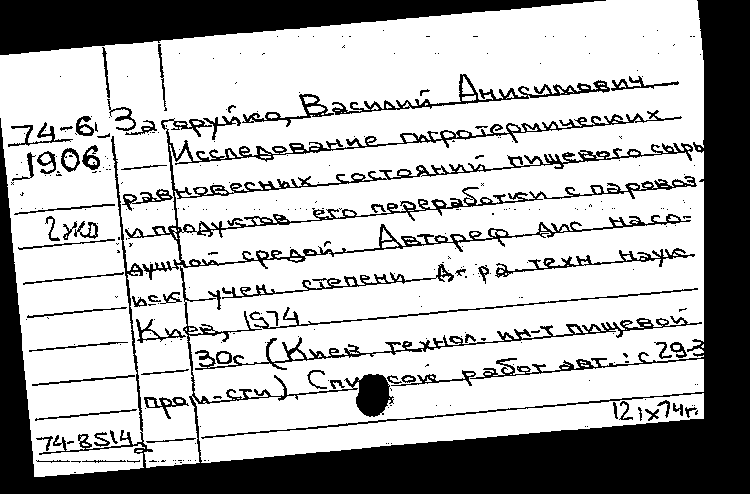 74-6 Загаруйко, Василий Анисимович
1906 Исследование гигротермических
равновесных состояний пищевого сырь
2 жо и продуктов его переработки с паровоз-
душной средой. Автореф дис на со-
иск учен. степени д-ра техн. наук
Киев, 1974.
30с (Киев. технол. ин-т пищевой
пром-сти). Список работ авт.: с 29-3
74-8514 12 IX 74г.